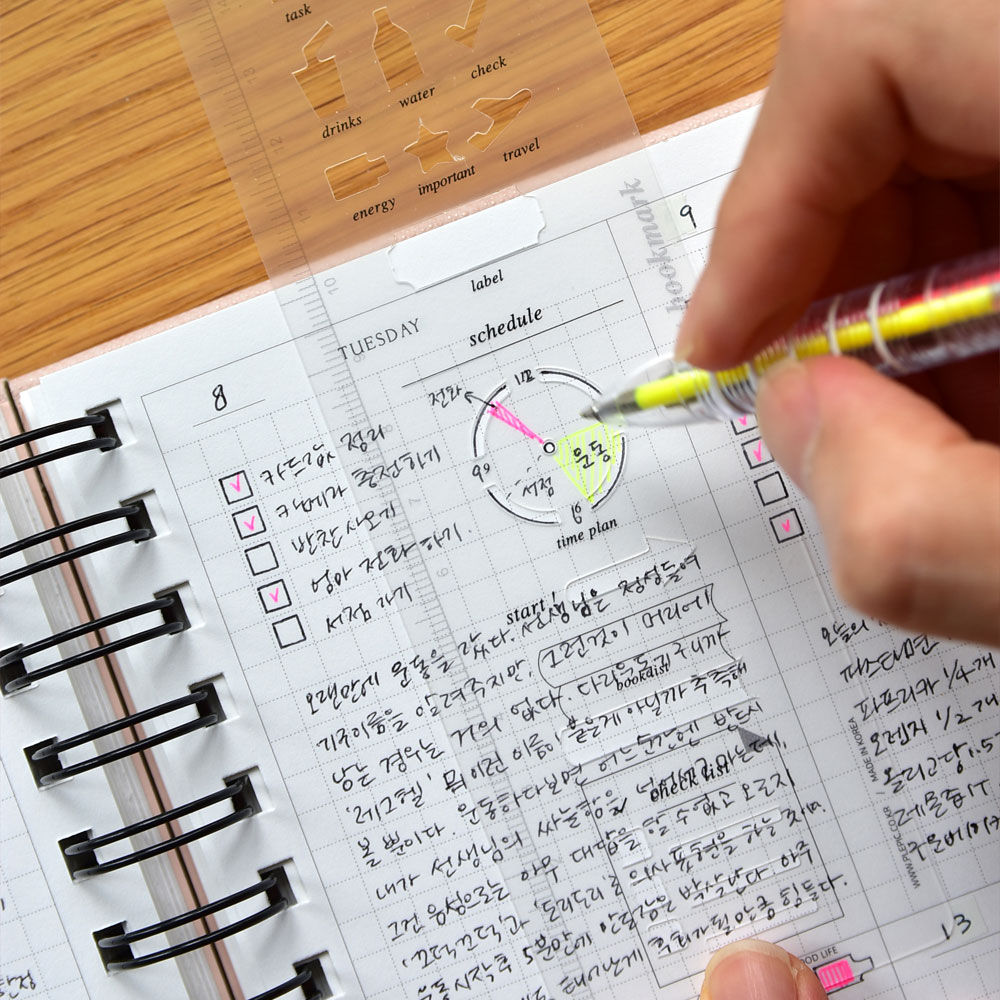 task
drinks
water
check
energy
important
travel
label
bookmark
TUESDAY
schedule
8
9
전화
12
9
6
운동
서점
time plan
정리
카메라 충전하기
반찬 사오기
엄마 전화하기.
서점 가기
start!
booklist
check list
오랜만에 운동을 갔다. 선생님은 정성들여
기구이름을 알려주지만, 그런것이 머리에
남는 경우는 거의 없다. 다리운동기구니까
'레그헬' 뭐 이런 이름이 붙은게 아닐까 추측해
볼 뿐이다. 운동하다보면 어느순간엔 반드시
내가 선생님의
그런 음성으로는 아무 대답을 할 수 없고 오로지
'끄덕끄덕'과 '도리도리'로 의사표현을 하는 것이다.
운동시작후 5분만에
오늘의
파스타면
파프리카 1/4개
오렌지 1/2개
올리고당 1.5
레몬즙 1T
WWW.PLEPIC.CO.KR / MADE IN KOREA
OOD LIFE
13